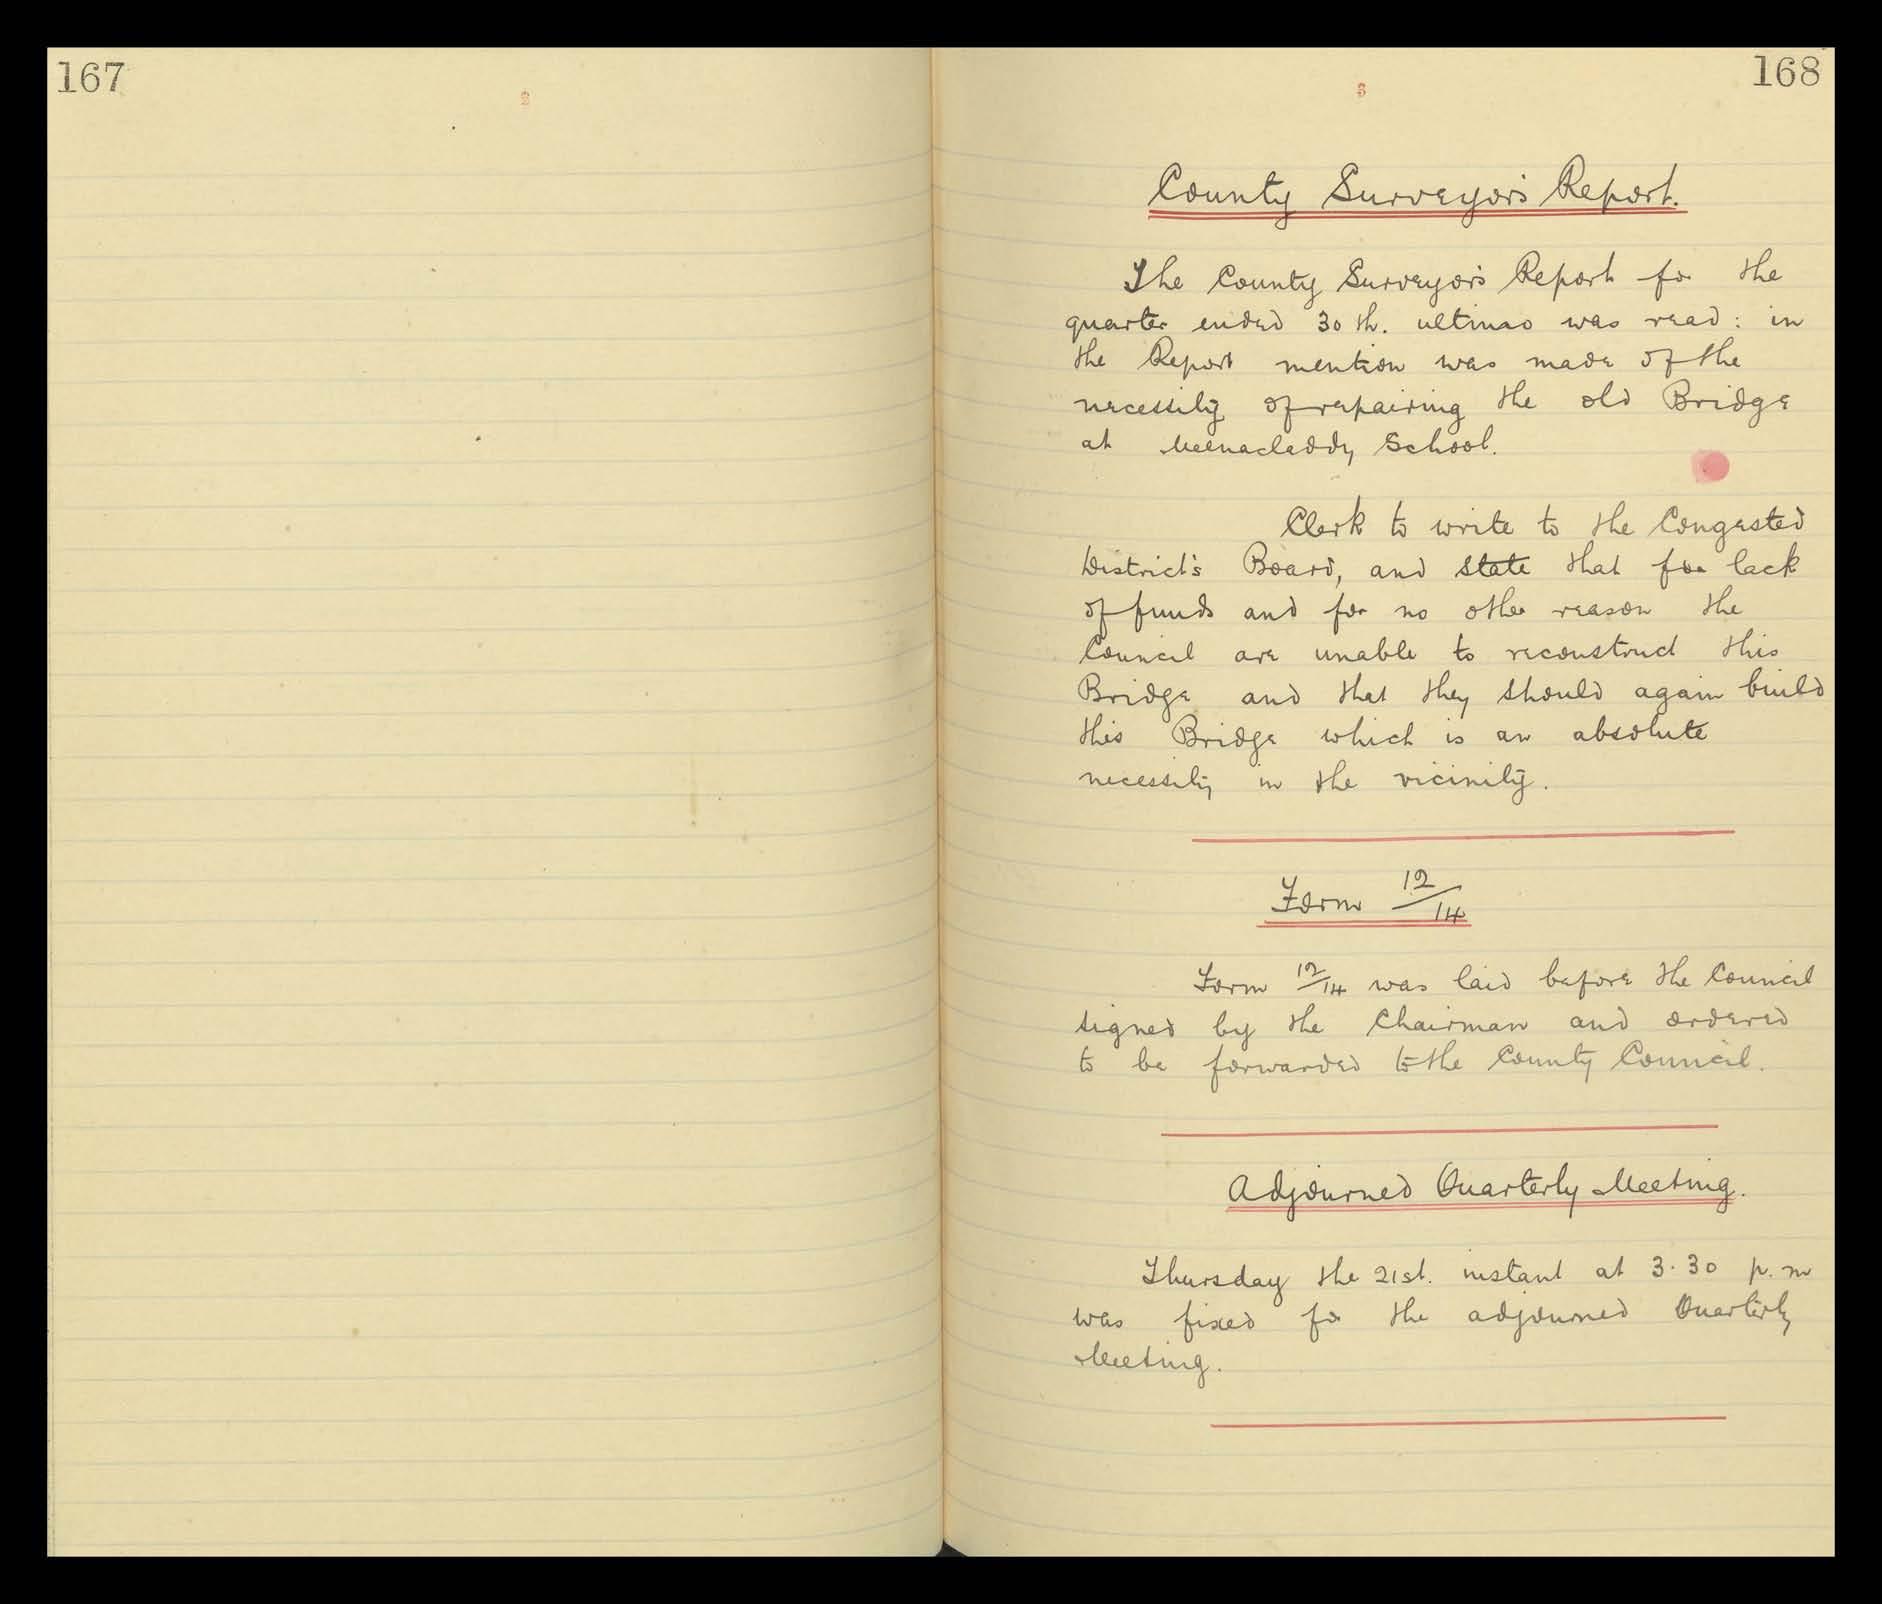 167
168
County Surveyor's Report.
The County Surveyor's Report for the
quarter ended 30th. ultimo was read: in
the Report mention was made of the
necessity of repairing the old Bridge
at Meenacladdy School.
Clerk to write to the Congested
District's Board, and state that for lack
of funds and for no other reason the
Council are unable to reconstruct this
Bridge and that they should again build
this Bridge which is an absolute
necessity in the vicinity.
Form 12/14
Form 12/14 was laid before the Council
signed by the Chairman and ordered
to be forwarded to the County Council.
Adjourned Quarterly Meeting.
Thursday the 21st. instant at 3.30 p.m
was fixed for the adjourned Quarterly
Meeting.